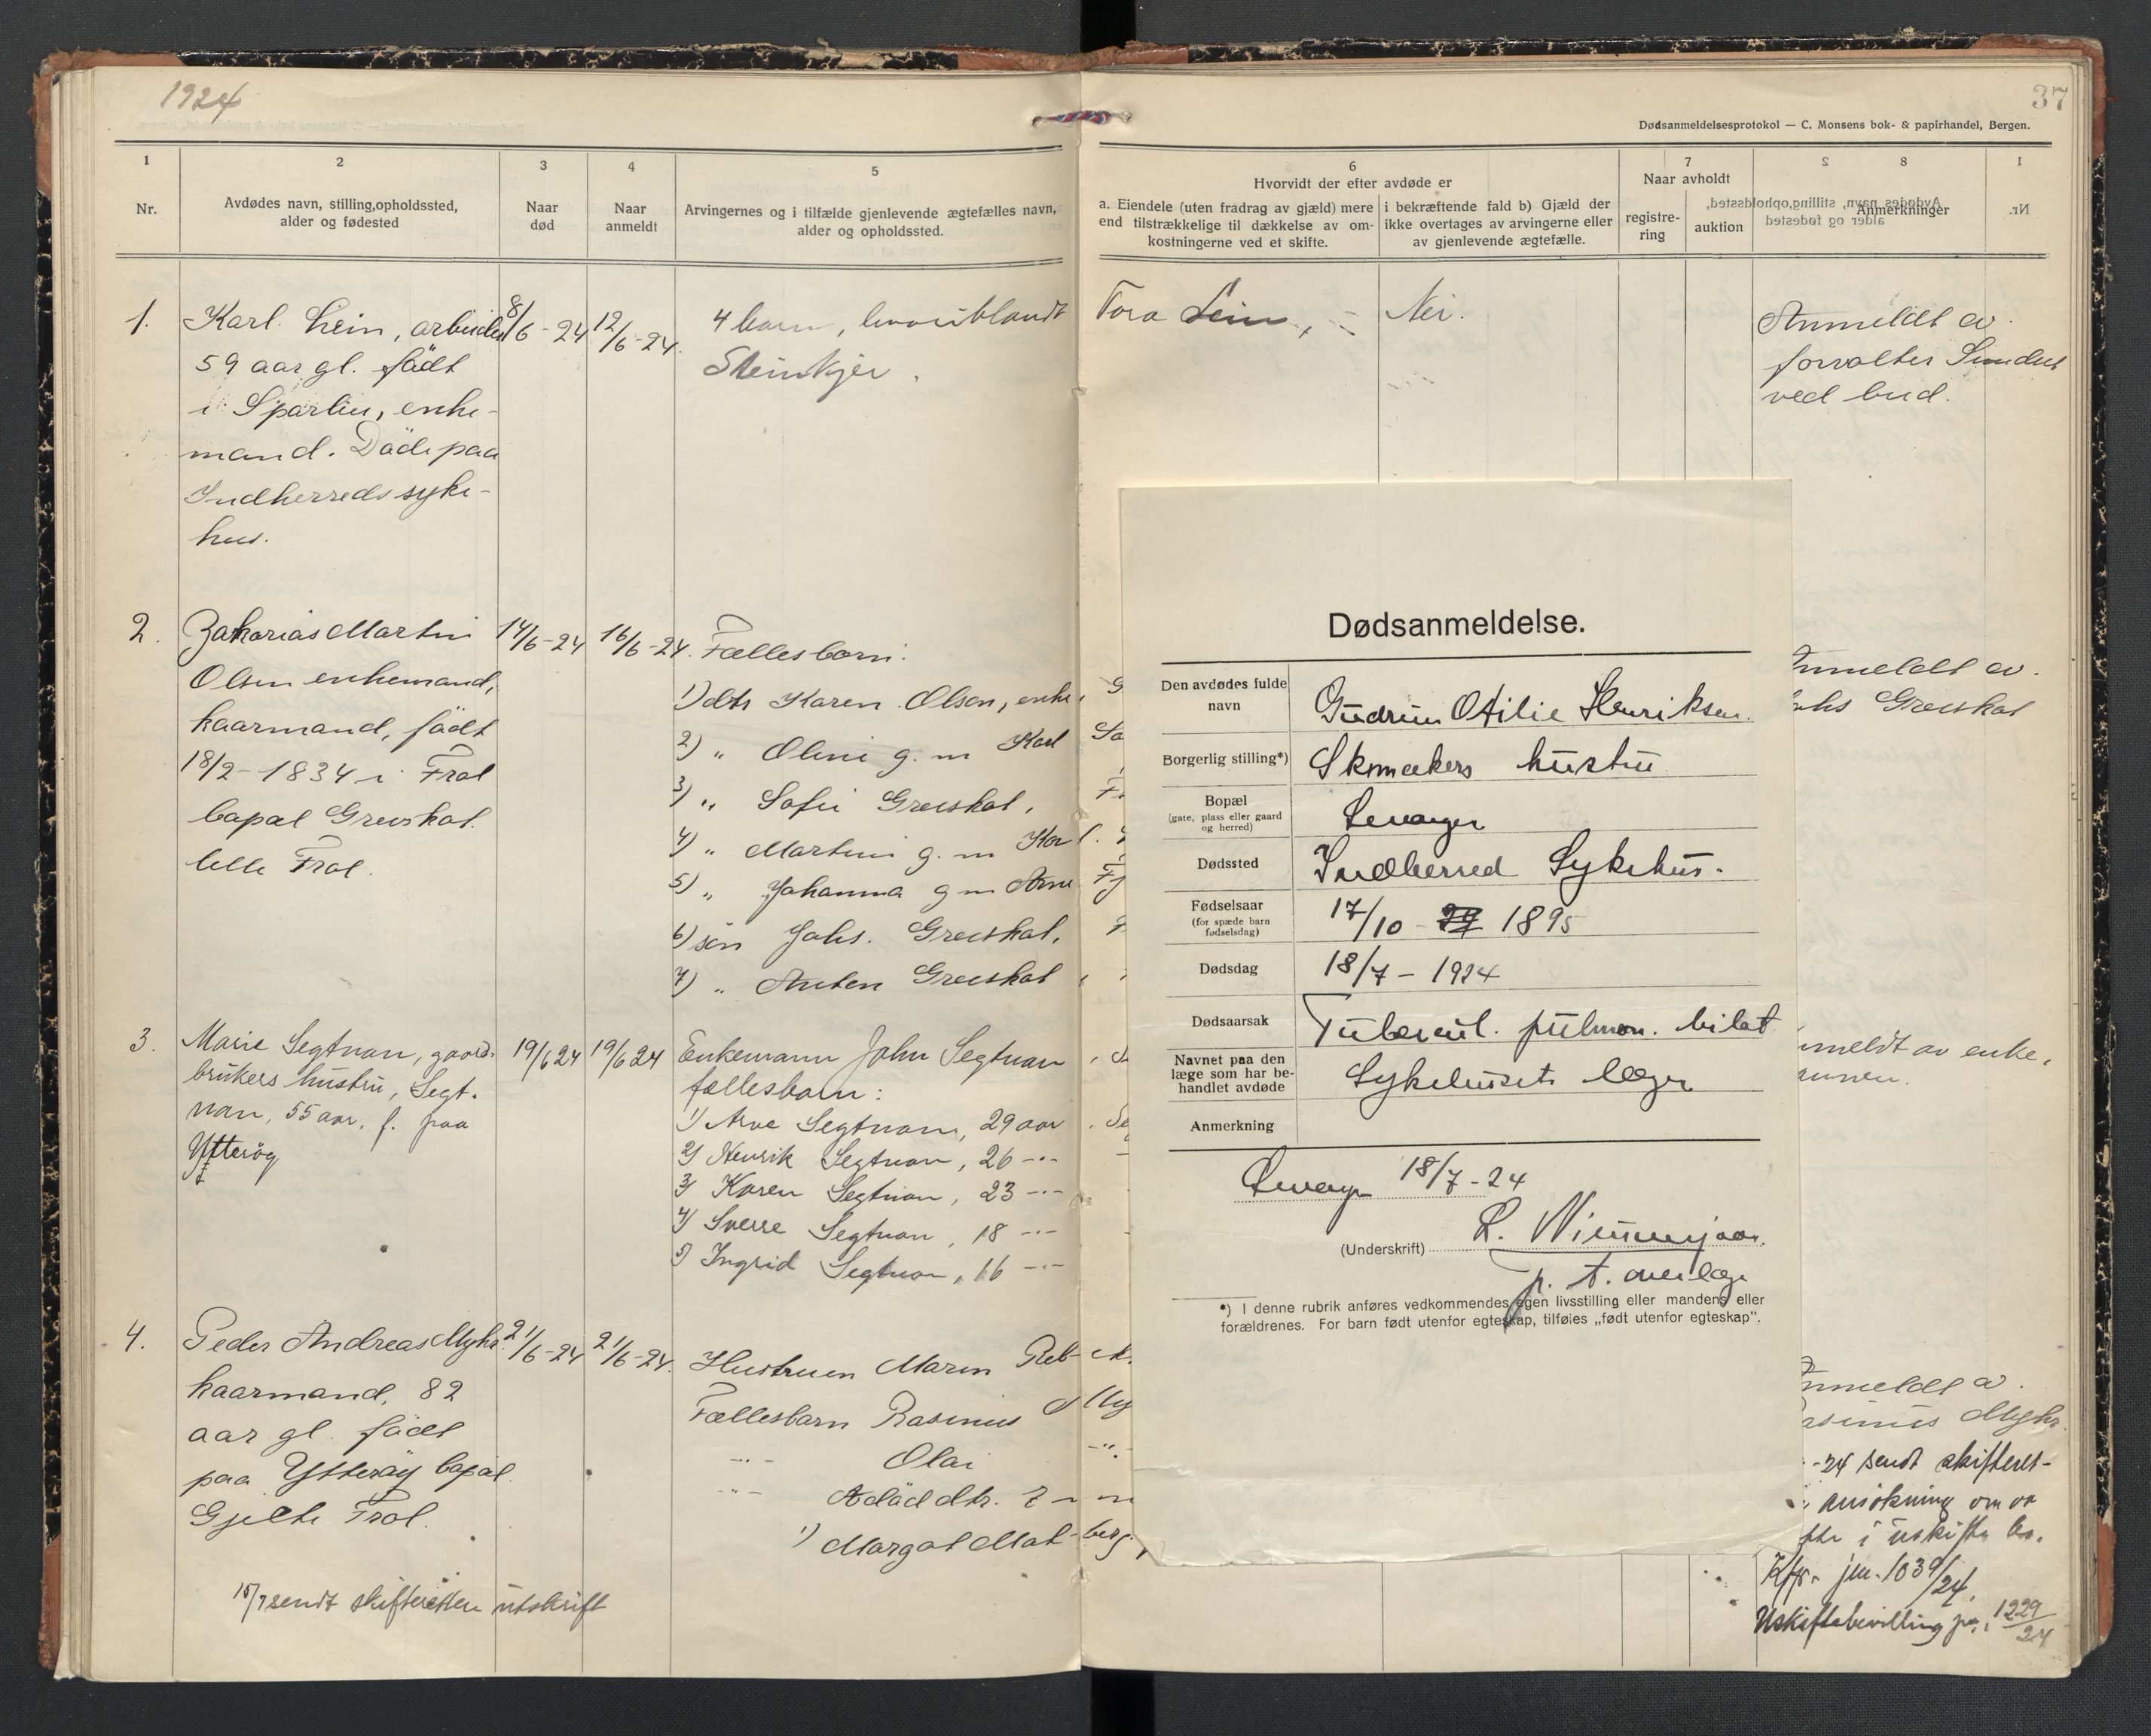 1924
37
Dødsanmeldelsesprotokol — C. Monsens bok- & papirhandel, Bergen.
1
Nr.
2
Avdødes navn, stilling, opholdssted,
alder og fødested
3
Naar
død
4
Naar
anmeldt
5
Arvingernes og i tilfælde gjenlevende ægtefælles navn,
alder og opholdssted.
6
Hvorvidt der efter avdøde er
a. Eiendele (uten fradrag av gjæld) mere
end tilstrækkelige til dækkelse av om-
kostningerne ved et skifte.
i bekræftende fald b) Gjæld der
ikke overtages av arvingerne eller
av gjenlevende ægtefælle.
7
Naar avholdt
registre-
ring
auktion
8
Anmerkninger
1.
Karl Lein, arbeider
59 aar gl. født
i Sparbu, enke-
mand. Døde paa
Indherreds syke-
hus.
8/6-24
12/6-24.
4 barn, hvoriblandt
Steinkjer.
Tora Lein,
Nei.
Anmeldt av
forvalter
ved bud.
2.
Zakarias Martin
Olsen enkemand,
kaarmand, født
18/2-1834 i Frol
bopæl Greiskal
lille Frol.
14/6-24
16/6-24.
Fællesbarn:
1) dtr Karen Olsen, enke,
2) " Oline g. m Karl
3) " Sofie Greiskal,
4) " Martine g. m Kar
5) " Johanna g m Arne
6) søn Johs. Greiskal,
7) " Anten Greiskal
Anmeldt av
Johs Greiskal
3.
Marie Segtnan, gaard-
brukers hustru, Segt-
nan, 55 aar, f. paa
Ytterøy
19/6 24
19/6 24
Enkemann John Segtnan
fællesbarn:
1) Arve Segtnan, 29 aar
2) Henrik Segtnan, 26 -"-
3) Karen Segtnan, 23 -"-
4) Sverre Segtnan, 18 -"-
5) Ingrid Segtnan, 16 -"-
meldt av enke-
4.
Peder Andreas Myhr
kaarmand, 82
aar gl. født
paa Ytterøy bopæl
Gjelte Frol.
21/6-24
21/6-24.
Hustruen Maren
Fællesbarn Rasinus
-"- Olai
-"- Adød dtr.
1) Margot
15/7 sendt skifteretten utskrift
nmeldt av
asinus Myhr
-24 sendt skifteret-
ansøkning om at
sitte i uskifte bo.
Kfr. jnr. 1039/24.
Uskiftebevilling jnr. 1229/24
Dødsanmeldelse.
Den avdødes fulde
navn
Gudrun Otilie Henriksen.
Borgerlig stilling*)
Skomakers hustru
Bopæl
(gate, plass eller gaard
og herred)
Levanger
Dødssted
Indherred Sykehus.
Fødselsaar
(for spæde barn
fødselsdag)
17/10 - 1895
Dødsdag
18/7 - 1924
Dødsaarsak
Tubercul. pulmon. bilat
Navnet paa den
læge som har be-
handlet avdøde
Sykehusets læger
Anmerkning
Levanger 18/7-24
(Underskrift)
p. t. overlæge
*) I denne rubrik anføres vedkommendes egen livsstilling eller mandens eller
forældrenes. For barn født utenfor egteskap, tilføies „født utenfor egteskap”.